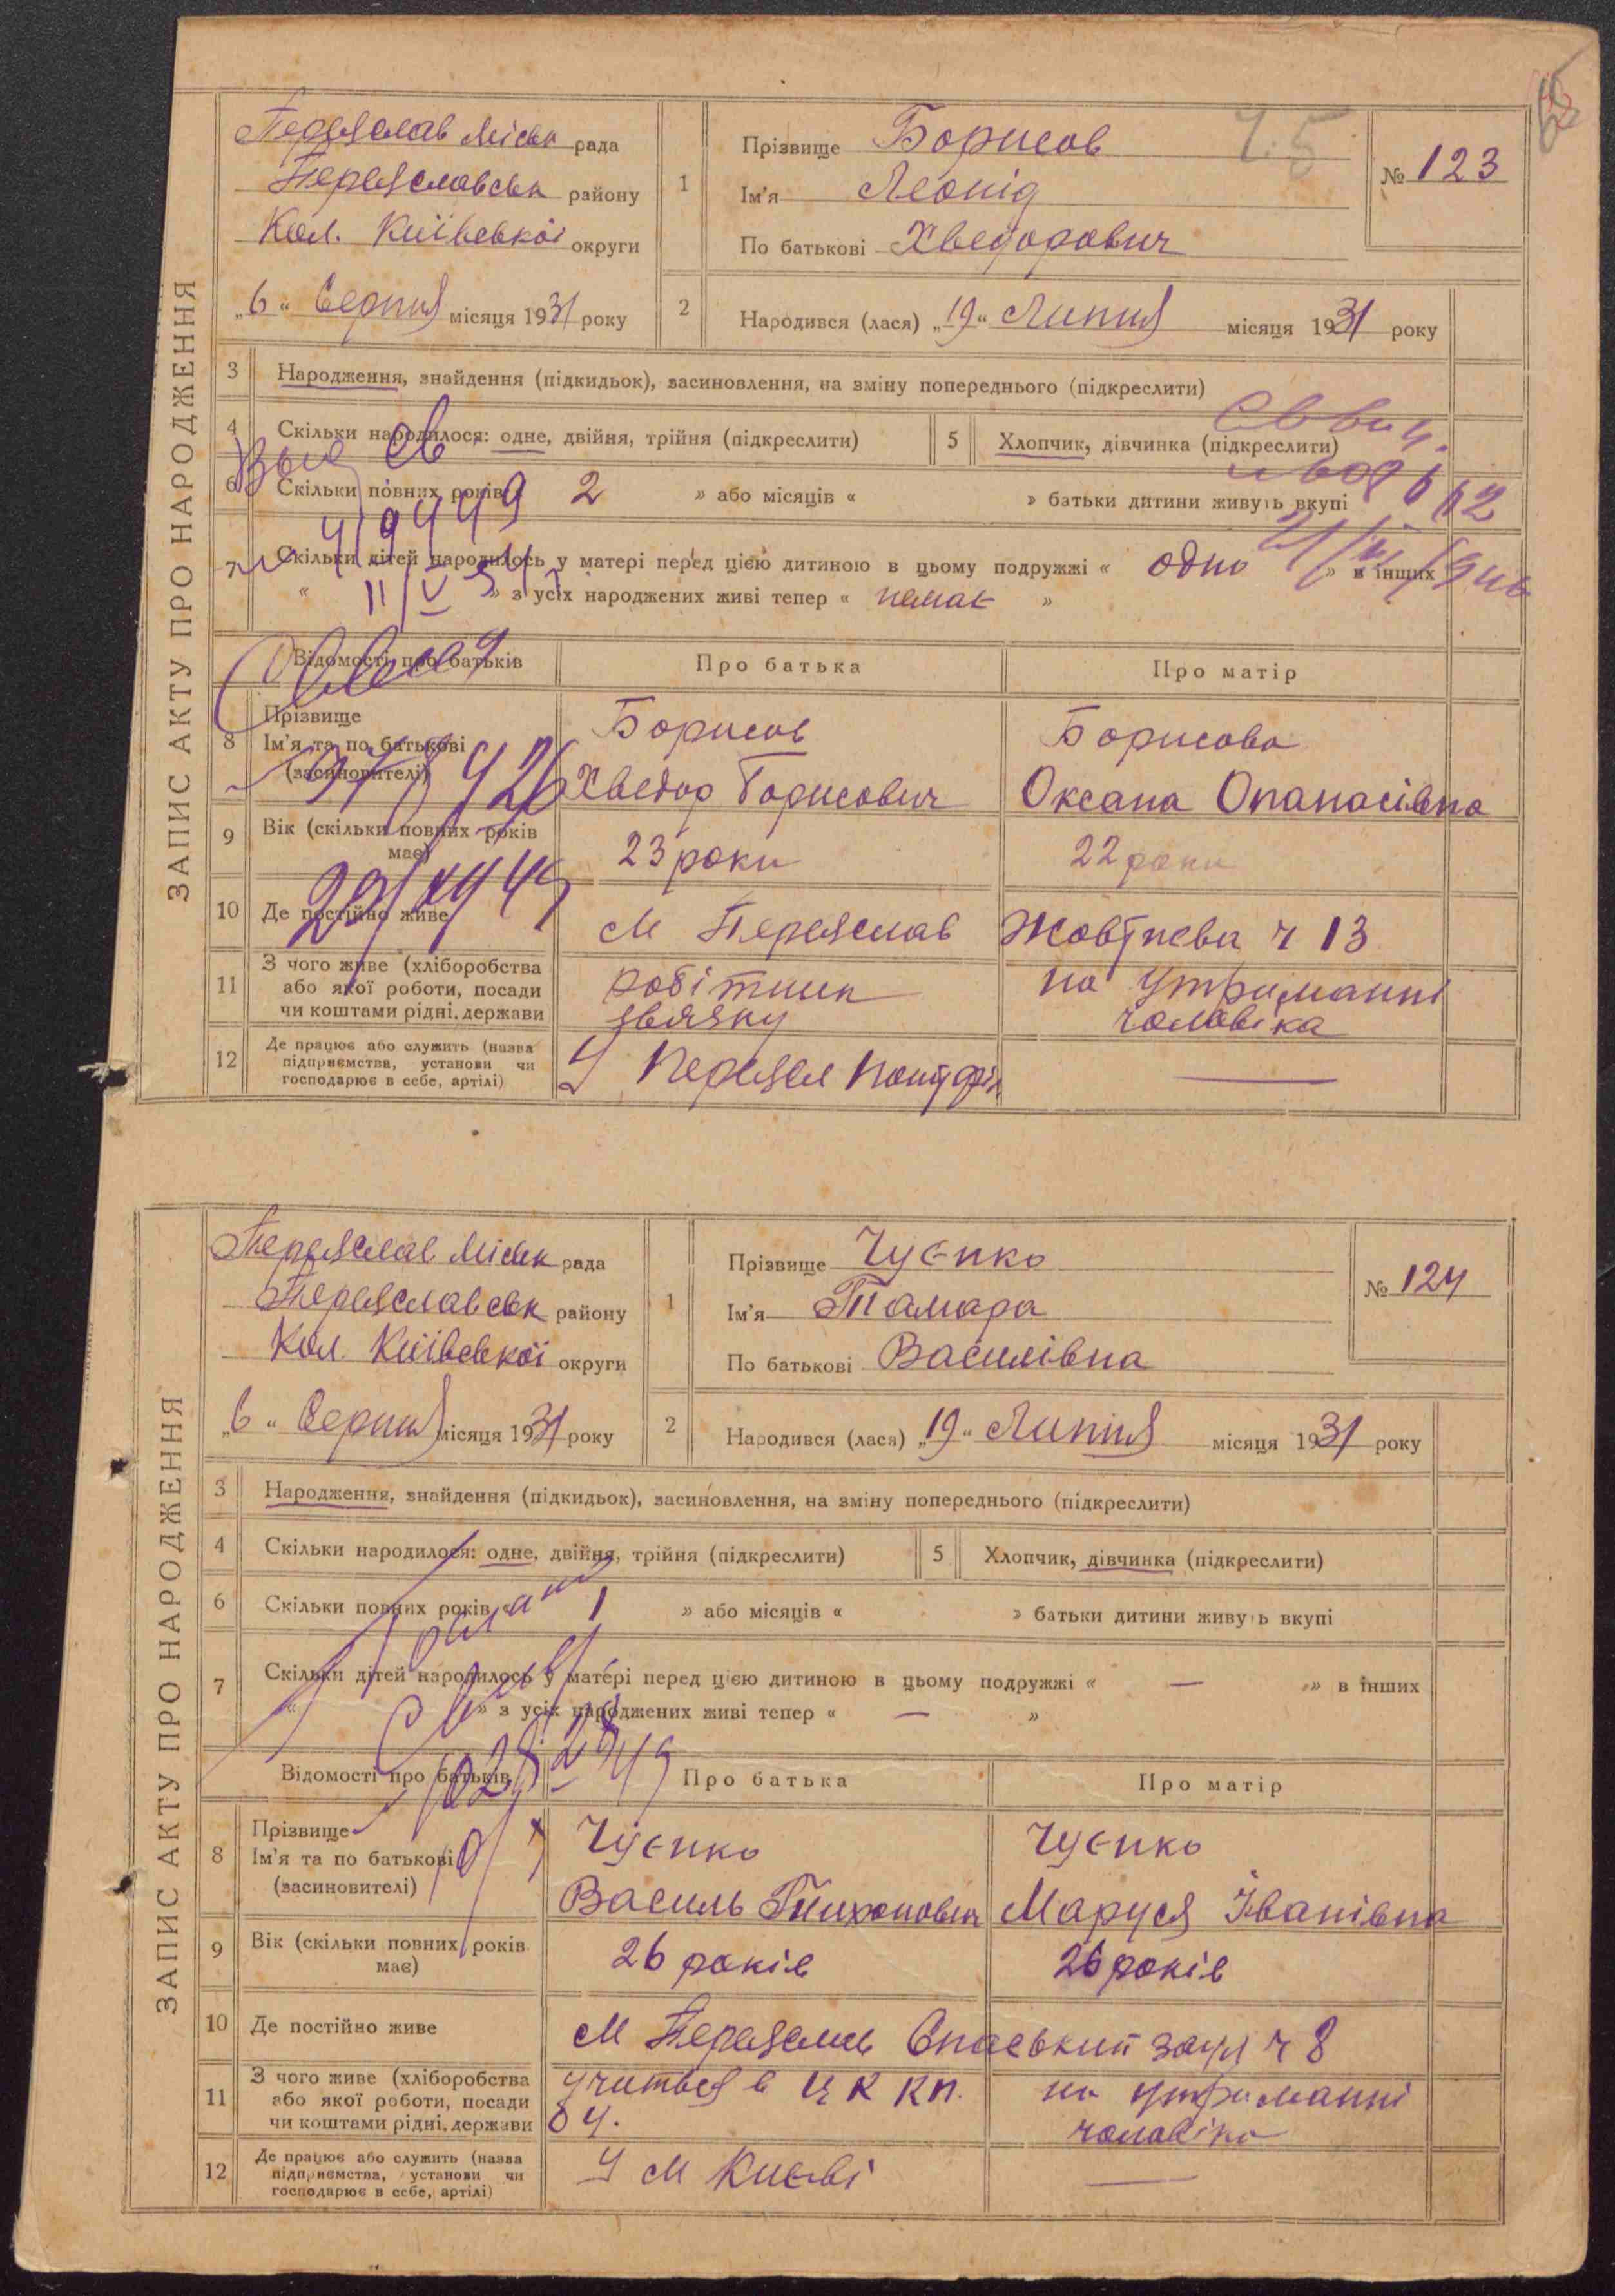 ЗАПИС АКТУ ПРО НАРОДЖЕННЯ
Переяслав Міськ рада
Переяславськ району
Кол. Київської округи
„6“ Серпня місяця 1931 року
1
Прізвище Борисов
Ім'я Леонід
По батькові Хведорович
№ 123
2
Народився (лася) „19“ Липня місяця 1931 року
3 Народження, знайдення (підкидьок), засиновлення, на зміну попереднього (підкреслити)
4 Скільки народилося: одне, двійня, трійня (підкреслити)
5 Хлопчик, дівчинка (підкреслити)
6 Скільки повних років 2 » або місяців « » батьки дитини живуть вкупі
7 Скільки дітей народилось у матері перед цією дитиною в цьому подружжі « одно » в інших
« » з усіх народжених живі тепер « немає »
Відомості про батьків Про батька Про матір
8 Прізвище
Ім'я та по батькові
(засиновителі)
Борисов
Хведор Борисович
Борисова
Оксана Опанасівна
9 Вік (скільки повних років
має)
23 роки
22 роки
10 Де постійно живе
м Переяслав Жовтнева ч 13
11 З чого живе (хліборобства
або якої роботи, посади
чи коштами рідні, держави
робітник
звязку
на утриманні
чоловіка
12 Де працює або служить (назва
підприємства, установи чи
господарює в себе, артілі)
У Переясл
ЗАПИС АКТУ ПРО НАРОДЖЕННЯ
Переяслав Міськ рада
Переяславськ району
Кол. Київської округи
„6“ Серпня місяця 1931 року
1
Прізвище Чуєнко
Ім'я Тамара
По батькові Василівна
№ 124
2
Народився (лася) „19“ Липня місяця 1931 року
3 Народження, знайдення (підкидьок), засиновлення, на зміну попереднього (підкреслити)
4 Скільки народилося: одне, двійня, трійня (підкреслити)
5 Хлопчик, дівчинка (підкреслити)
6 Скільки повних років « 1 » або місяців « » батьки дитини живуть вкупі
7 Скільки дітей народилось у матері перед цією дитиною в цьому подружжі « — » в інших
« » з усіх народжених живі тепер « — »
Відомості про батьків Про батька Про матір
8 Прізвище
Ім'я та по батькові
(засиновителі)
Чуєнко
Василь Тихонович
Чуєнко
Маруся Іванівна
9 Вік (скільки повних років
має)
26 років
26 років
10 Де постійно живе
м Переяслав Спаський заул ч 8
11 З чого живе (хліборобства
або якої роботи, посади
чи коштами рідні, держави
учиться в
на утриманні
чоловіка
12 Де працює або служить (назва
підприємства, установи чи
господарює в себе, артілі)
У м Києві